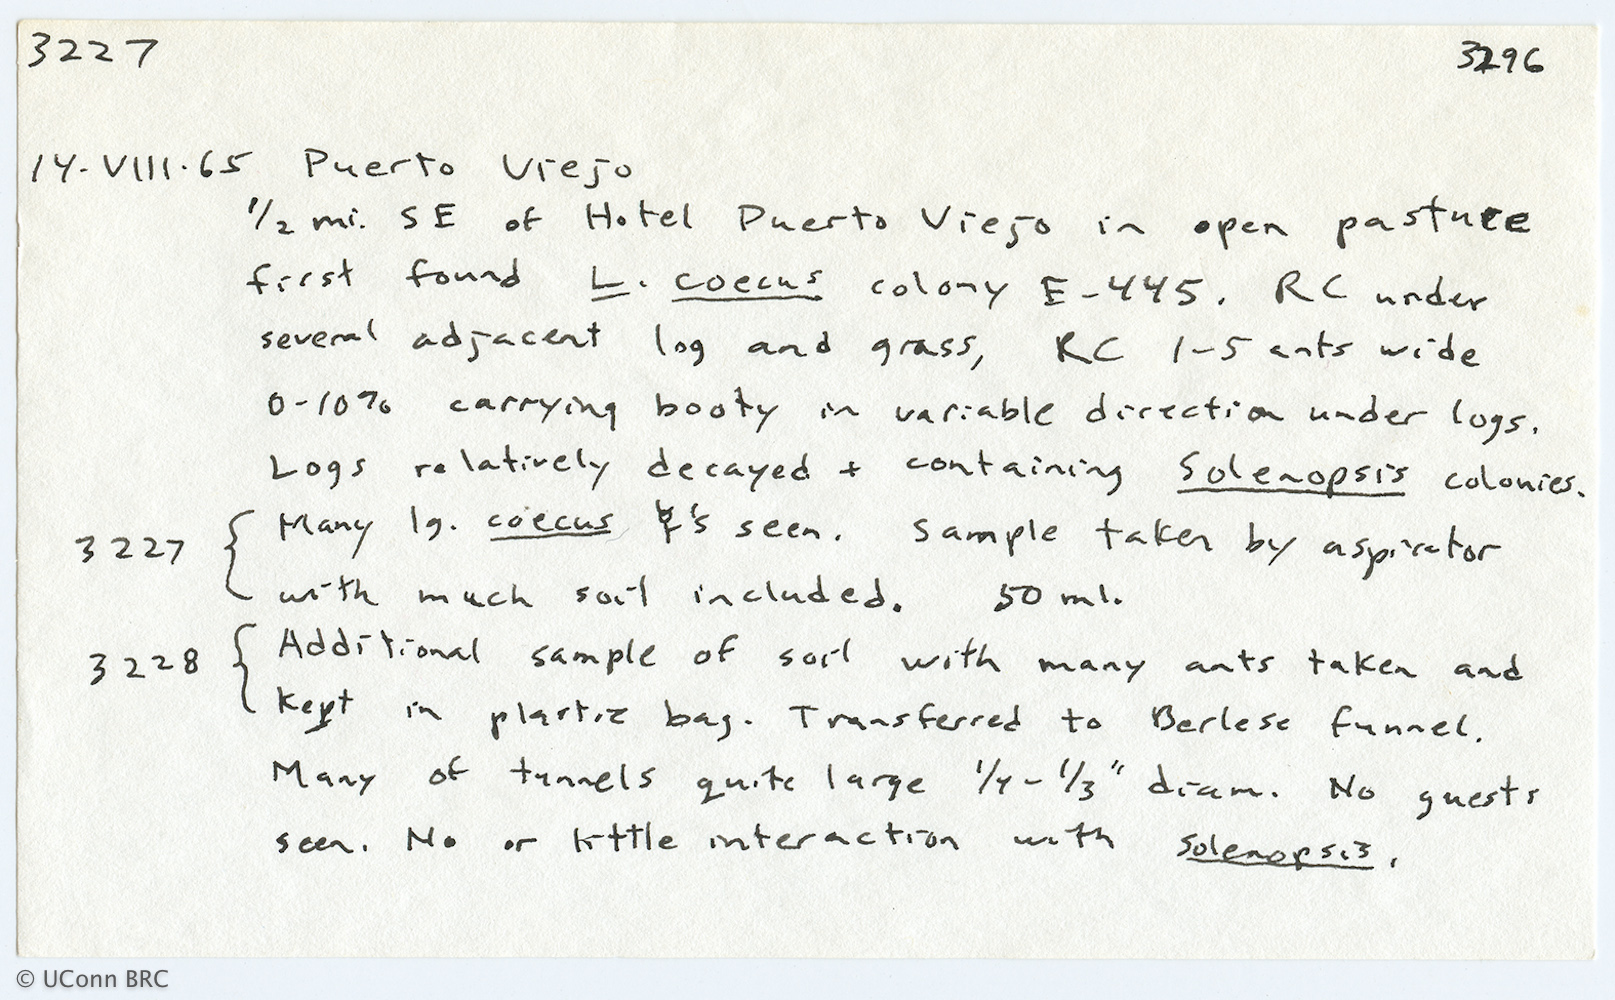 3227 3296
14-VIII-65 Puerto Viejo
1/2 mi. SE of Hotel Puerto Viejo in open pasture
first found L. coecus colony E-445. RC under
several adjacent log and grass, RC 1-5 ants wide
0-10% carrying booty in variable direction under logs.
Logs relatively decayed + containing Solenopsis colonies.
3227 { Many lg. coecus ☿'s seen. Sample taken by aspirator
with much soil included. 50 ml.
3228 { Additional sample of soil with many ants taken and
kept in plastic bag. Transferred to Berlese funnel.
Many of tunnels quite large 1/4-1/3" diam. No guests
seen. No or little interaction with Solenopsis.
© UConn BRC